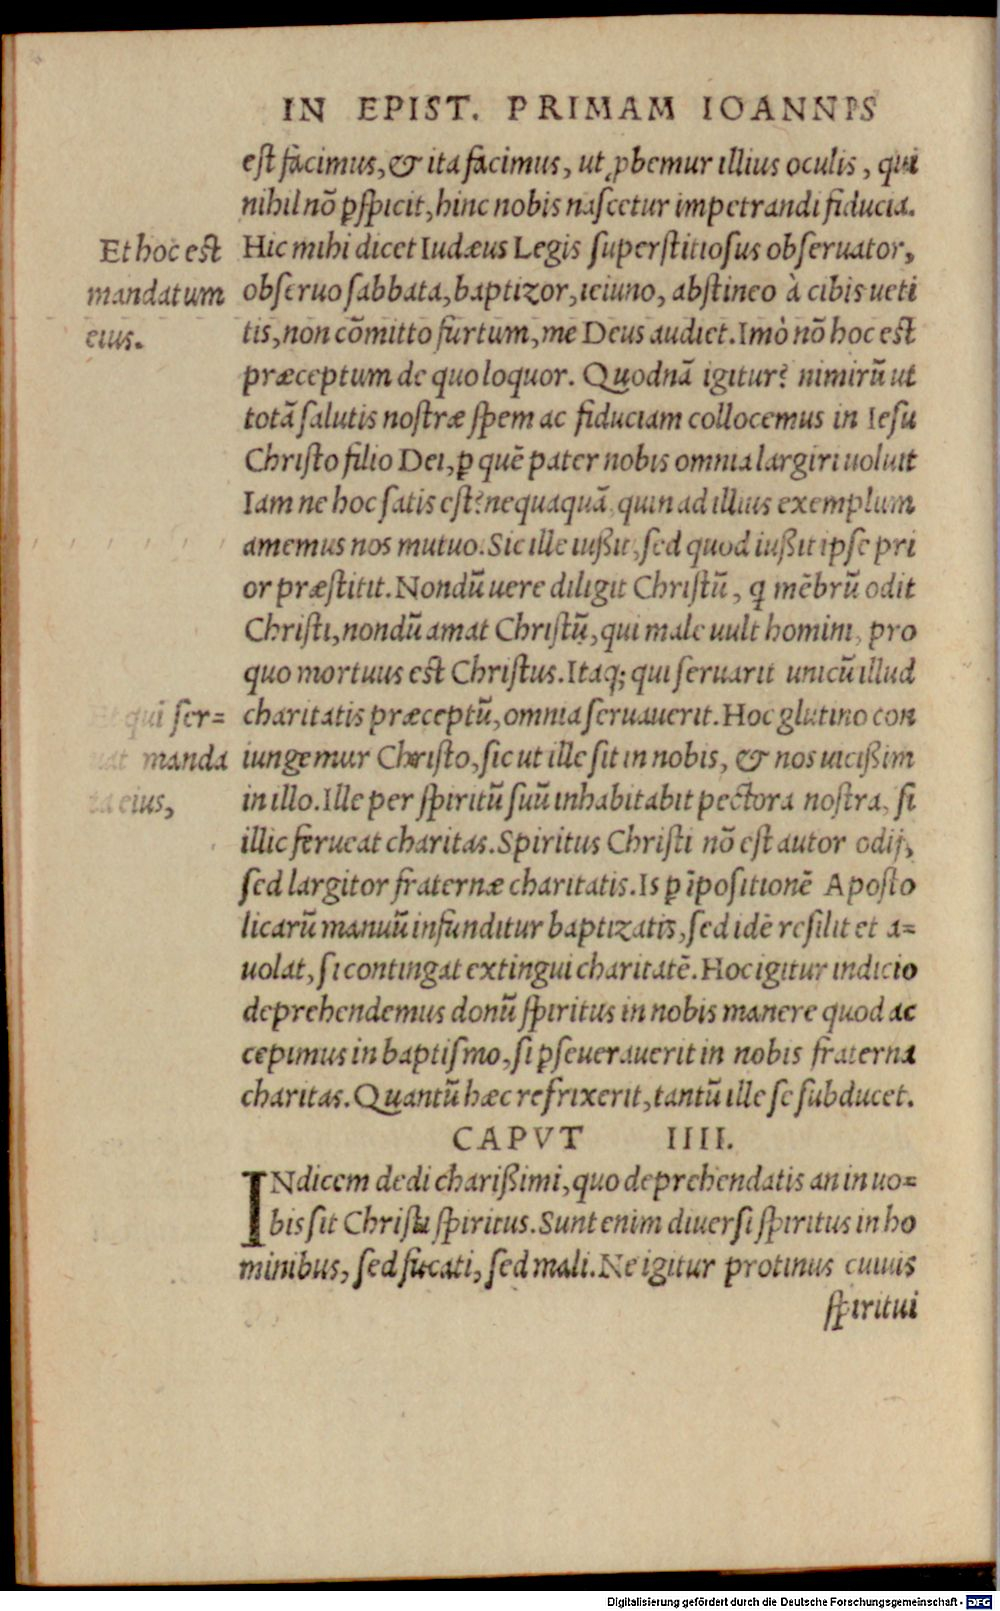 IN EPIST. PRIMAM IOANNIS
est facimus, & ita facimus, ut ꝓbemur illius oculis, qui
nihil nō ꝑspicit, hinc nobis nascetur impetrandi fiducia.
Et hoc est
mandatum
eius.
Hic mihi dicet Iudæus Legis superstitiosus obseruator,
obseruo sabbata, baptizor, ieiuno, abstineo à cibis ueti
tis, non cōmitto furtum, me Deus audiet. Imò nō hoc est
præceptum de quo loquor. Quodnā igitur? nimirū ut
totā salutis nostræ spem ac fiduciam collocemus in Iesu
Christo filio Dei, ꝑ quē pater nobis omnia largiri uoluit
Iam ne hoc satis est? nequaquā, quin ad illius exemplum
amemus nos mutuo. Sic ille iußit, sed quod iußit ipse pri
or præstitit. Nondū uere diligit Christū, q mēbrū odit
Christi, nondū amat Christū, qui male uult homini, pro
quo mortuus est Christus. Itaq; qui seruarit unicū illud
Et qui ser=
uat manda
ta eius,
charitatis præceptū, omnia seruauerit. Hoc glutino con
iungemur Christo, sic ut ille sit in nobis, & nos uicißim
in illo. Ille per spiritū suū inhabitabit pectora nostra, si
illic ferueat charitas. Spiritus Christi nō est autor odij,
sed largitor fraternæ charitatis. Is ꝑ īpositionē Aposto
licarū manuū infunditur baptizatis, sed idē resilit et a=
uolat, si contingat extingui charitatē. Hoc igitur indicio
deprehendemus donū spiritus in nobis manere quod ac
cepimus in baptismo, si ꝑseuerauerit in nobis fraterna
charitas. Quantū hæc refrixerit, tantū ille se subducet.
CAPVT IIII.
INdicem dedi charißimi, quo deprehendatis an in uo=
bis sit Christi spiritus. Sunt enim diuersi spiritus in ho
minibus, sed fucati, sed mali. Ne igitur protinus cuiuis
spiritui
Digitalisierung gefördert durch die Deutsche Forschungsgemeinschaft - DFG